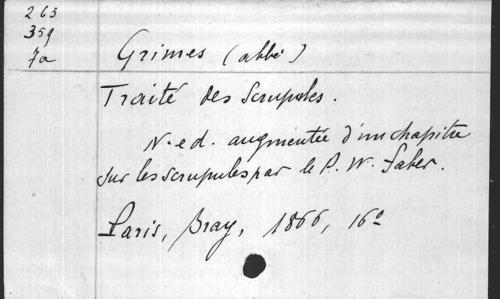 263
359
7a
Grimes (abbé)
Traité des Scrupules.
N. ed. augmentée d'un chapitre
sur les scrupules par le P. W. Faber.
Paris, Bray, 1866, 16°